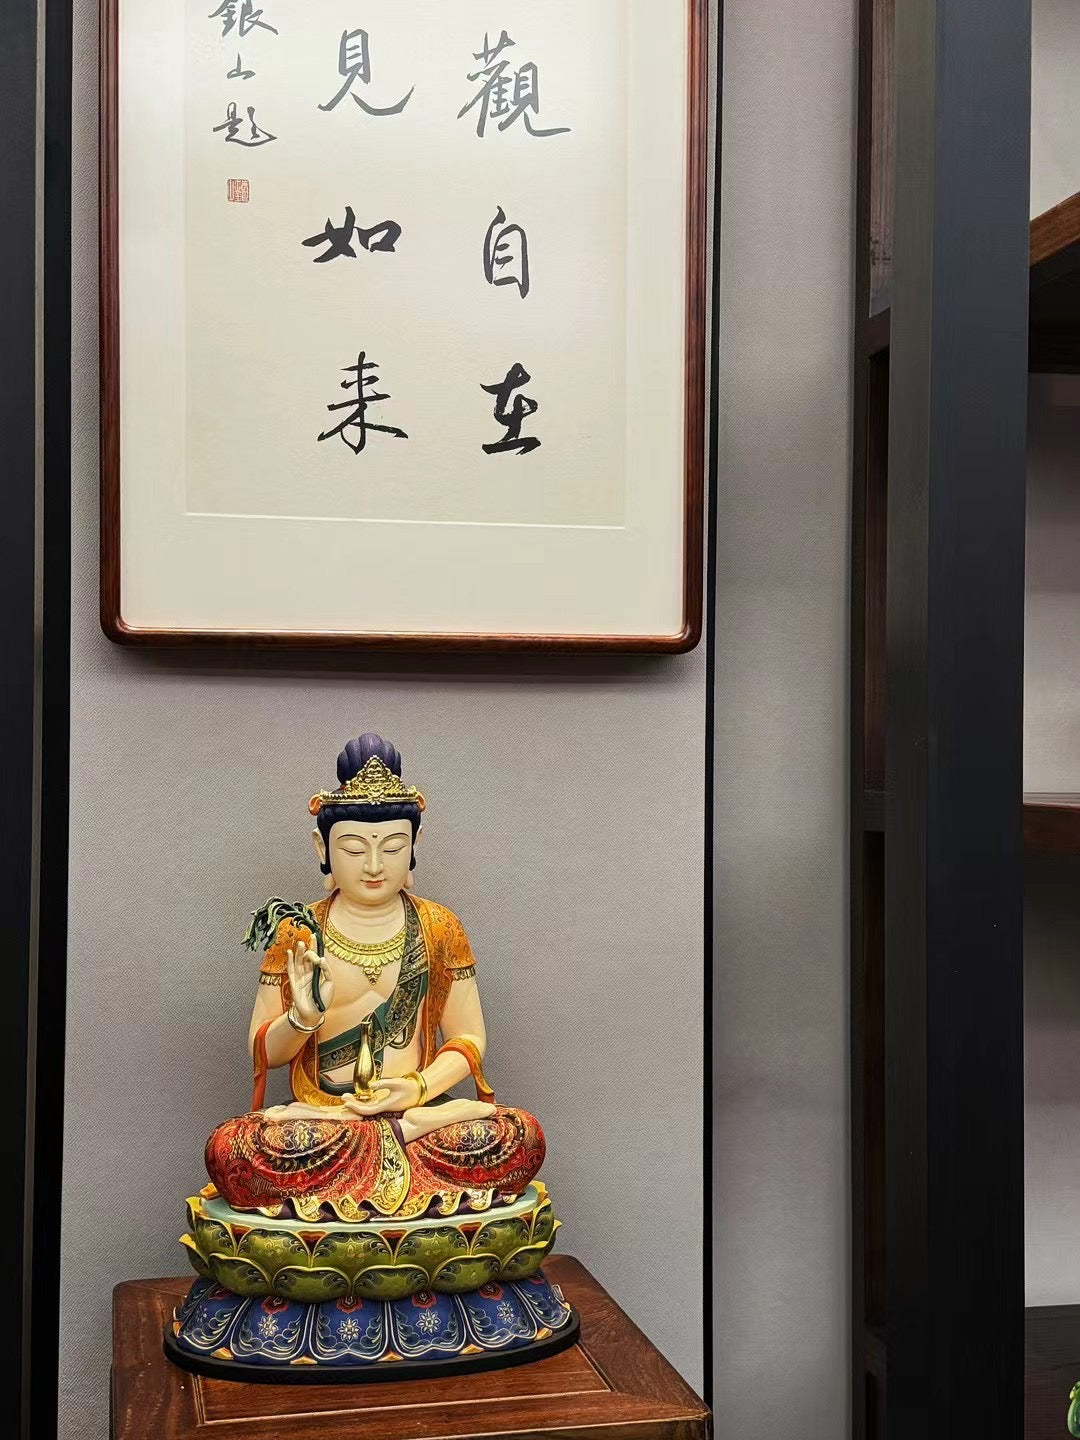 觀自在
見如来
銀山題